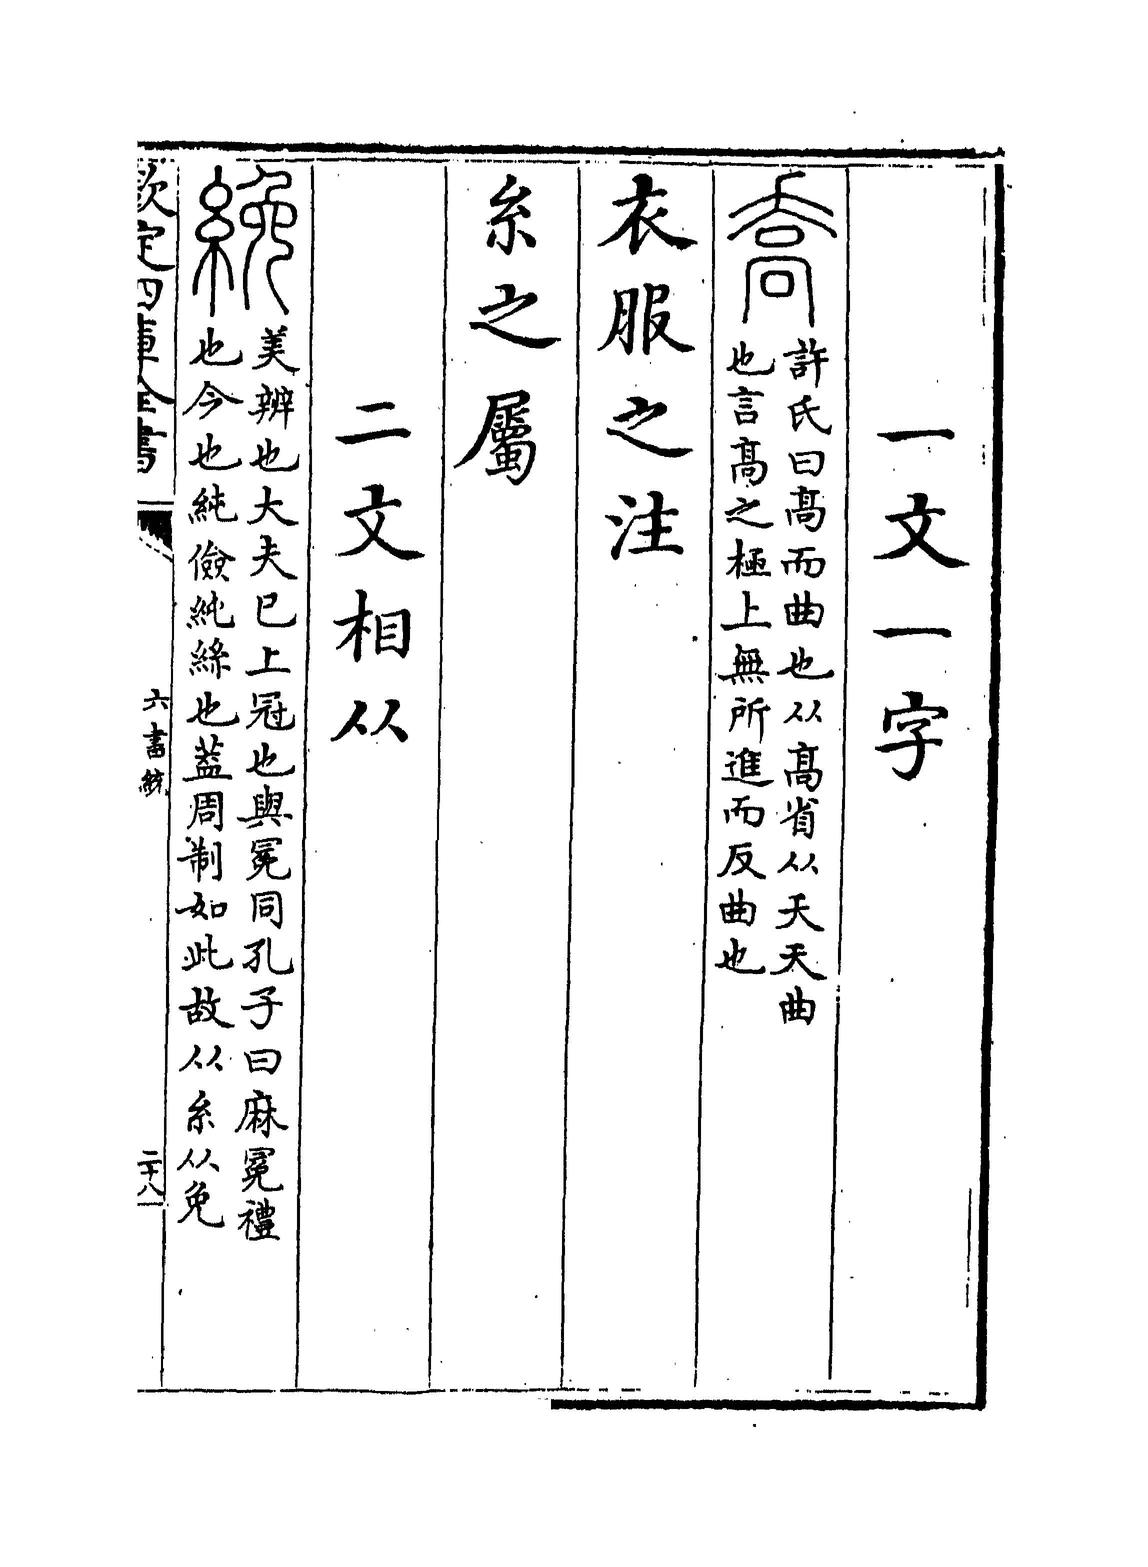 一文一字
喬
許氏曰髙而曲也从髙省从夭夭曲
也言髙之極上無所進而反曲也
衣服之注
糸之屬
二文相从
絻
美辨也大夫巳上冠也與冕同孔子曰麻冕禮
也今也純儉純絲也葢周制如此故从糸从免
欽定四庫全書
六書統
二十八